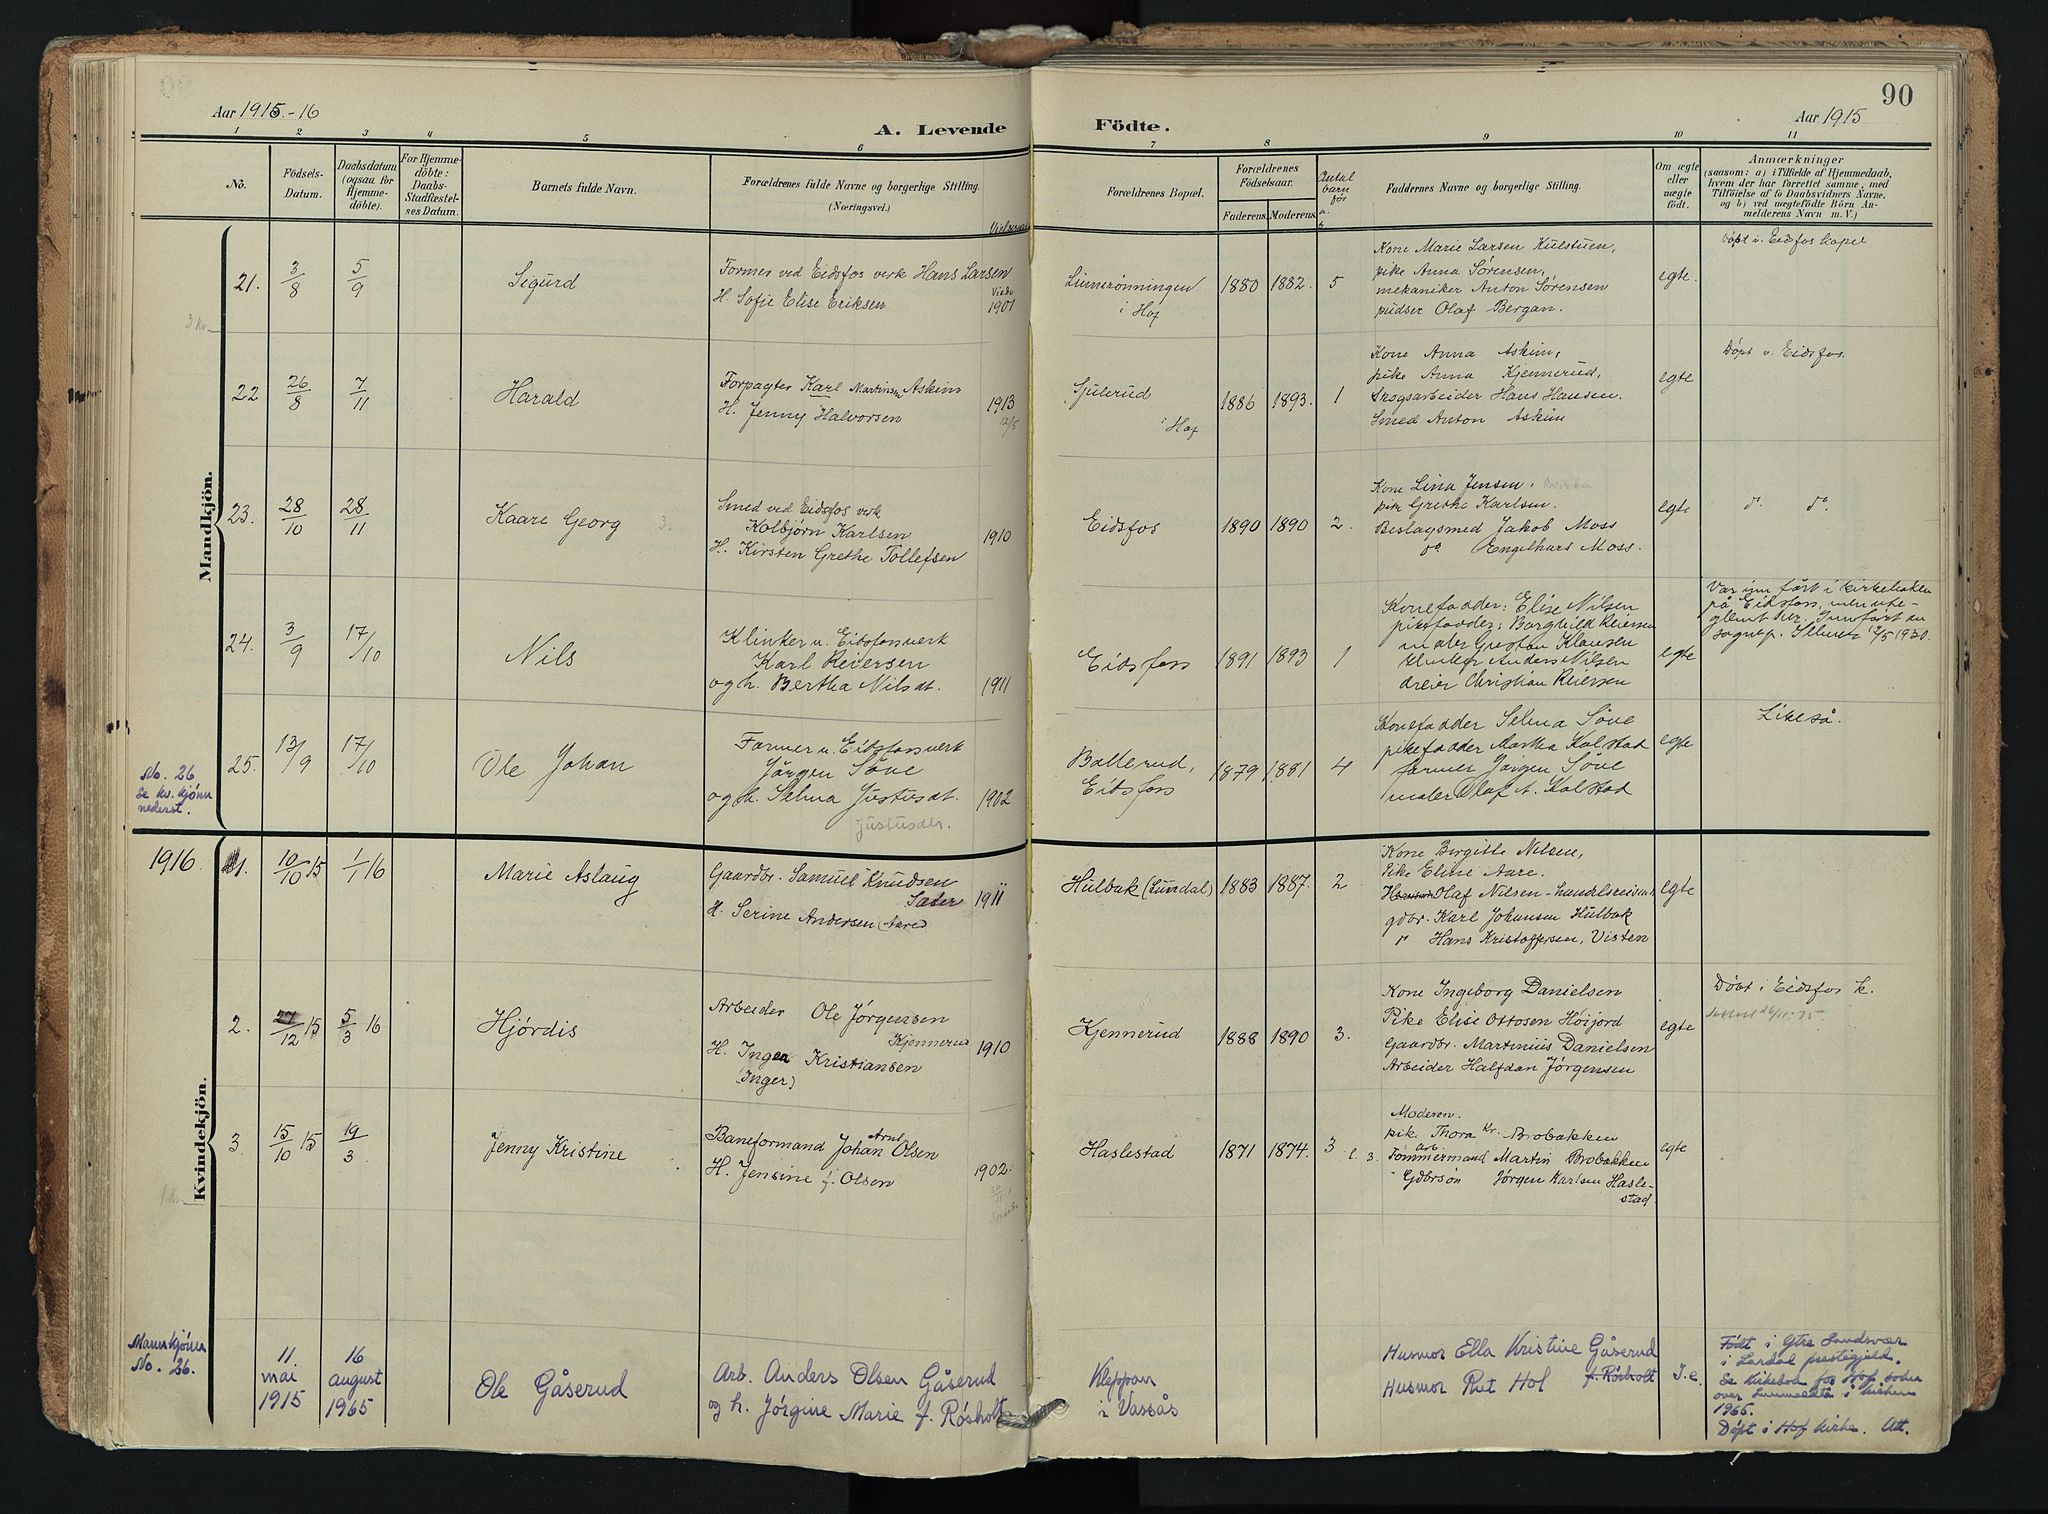 90
Aar 1915.-16
A. Levende
Födte.
Aar 1915
1 2 3 4 5 6 7 8 9 10 11
No.
Födsels-
Datum.
Daabsdatum
(ogsaa for
Hjemme-
döbte).
For Hjemme-
döbte:
Daabs-
Stadfæstel-
ses Datum.
Barnets fulde Navn.
Forældrenes fulde Navne og borgerlige Stilling.
(Næringsvei.)
Vielsesaar
Forældrenes Bopæl.
Forældrenes
Födselsaar.
Faderens. Moderens.
Antal
barn
før
a.
b.
Faddernes Navne og borgerlige Stilling.
Om ægte
eller
uægte
födt.
Anmærkninger
(saasom: a) i Tilfælde af Hjemmedaab,
hvem der har forrettet samme, med
Tilföielse af to Daabsvidners Navne,
og b) ved uægtefödte Börn An-
melderens Navn m. V.)
Mandkjön.
21.
3/8
5/9
Sigurd
Former ved Eidsfos verk Hans Larsen
H. Sofie Elise Eriksen
Viede
1901
Linnerønningen
i Hof
1880 1882. 5
Kone Marie Larsen Kulstuen,
pike Anna Sørensen,
mekaniker Anton Sørensen
pudser Olaf Bergan.
egte.
Døpt i Eidsfos kapel
3 Kv.
22
26/8
7/11
Harald
Forpagter Karl Martinsen Askim
H. Jenny Halvorsen
1913
12/5
Sjulerud
i Hof
1886 1893. 1
Kone Anna Askim,
pike Anna Kjennerud,
Skogsarbeider Hans Hansen.
Smed Anton Askim
egte
Døpt v. Eidsfos.
23.
28/10
28/11
Kaare Georg 3.
Smed ved Eidsfos verk
Kolbjørn Karlsen
H. Kirsten Grethe Tollefsen
1910
Eidsfos
1890 1890 2.
Kone Lina Jensen,
pike Grethe Karlsen.
Beslagsmed Jakob Moss
do Engelhars Moss.
egte
do do
24.
3/9
17/10
Nils
Klinker v. Eidsfossverk
Karl Reiersen
og h. Bertha Nilsdt.
1911
Eidsfoss
1891 1893 1
Konefadder: Elise Nilsen
pikefadder: Borghild Reiersen
maler Gustav Klausen
klinker Anders Nilsen
dreier Christian Reiersen
egte
Var innført i kirkeboken
på Eidsfoss, men ute-
glemt her. Innført av
sognep. 12/5 1930.
25.
13/9
17/10
Ole Johan
Former v. Eidsfossverk
Jörgen Söve
og h. Selma Justusdt.
Justusdtr.
1902
Ballerud,
Eidsfoss
1879 1881 4
Konefadder Selma Söve
pikefadder Martha Kolstad
former Jörgen Söve
maler Olaf A. Kolstad
egte
Likeså.
No. 26
se kv. kjønn
nederst.
1916
Kvindekjön.
1.
10/10 15
1/1 16
Marie Aslaug
Gaardbr. Samuel Knudsen
Sæter
H. Serine Andersen (Aare)
1911
Hulbak (Sundal)
1883 1887. 2
Kone Birgitte Nilsen,
Pike Eline Aare.
Olaf Nilsen - handelsreisende
gdbr. Karl Johansen Hulbak
do Hans Kristoffersen, Visten
egte
2.
27/12 15
5/3 16
Hjørdis
Arbeider Ole Jørgensen
Kjennerud
H. Inga Kristiansen
(Inger)
1910
Kjennerud
1888 1890 3.
Kone Ingeborg Danielsen
Pike Elise Ottosen Høijord
Gaardbr. Martinius Danielsen
Arbeider Halfdan Jørgensen
egte
Døbt i Eidsfos k.
3
15/10 15
19/3
Jenny Kristine
Baneformand Johan Arnt Olsen
H. Jensine f. Olsen
1902.
Haslestad
1871 1874. 3 l. 3.
Moderen.
pike Thora Kr. Brobakken
arb
Tømmermand Martin Brobakken
Gdbrsøn Jørgen Karlsen Hasle-
stad
egte
1 Kv.
Mannkjønn
No. 26.
11
mai
1915
16
august
1965
Ole Gåserud
Arb. Anders Olsen Gåserud
og h. Jørgine Marie f. Røsholt
Kleppan
i Vassås
Husmor Ella Kristine Gåserud
f. Røsholt
Husmor Rut Hol
I.e.
Født i Ytre Sandsvær
i Lardal prestegjeld.
Se kirkebok for Hof sodn
over i kirken
1965.
Døpt i Hof kirke.